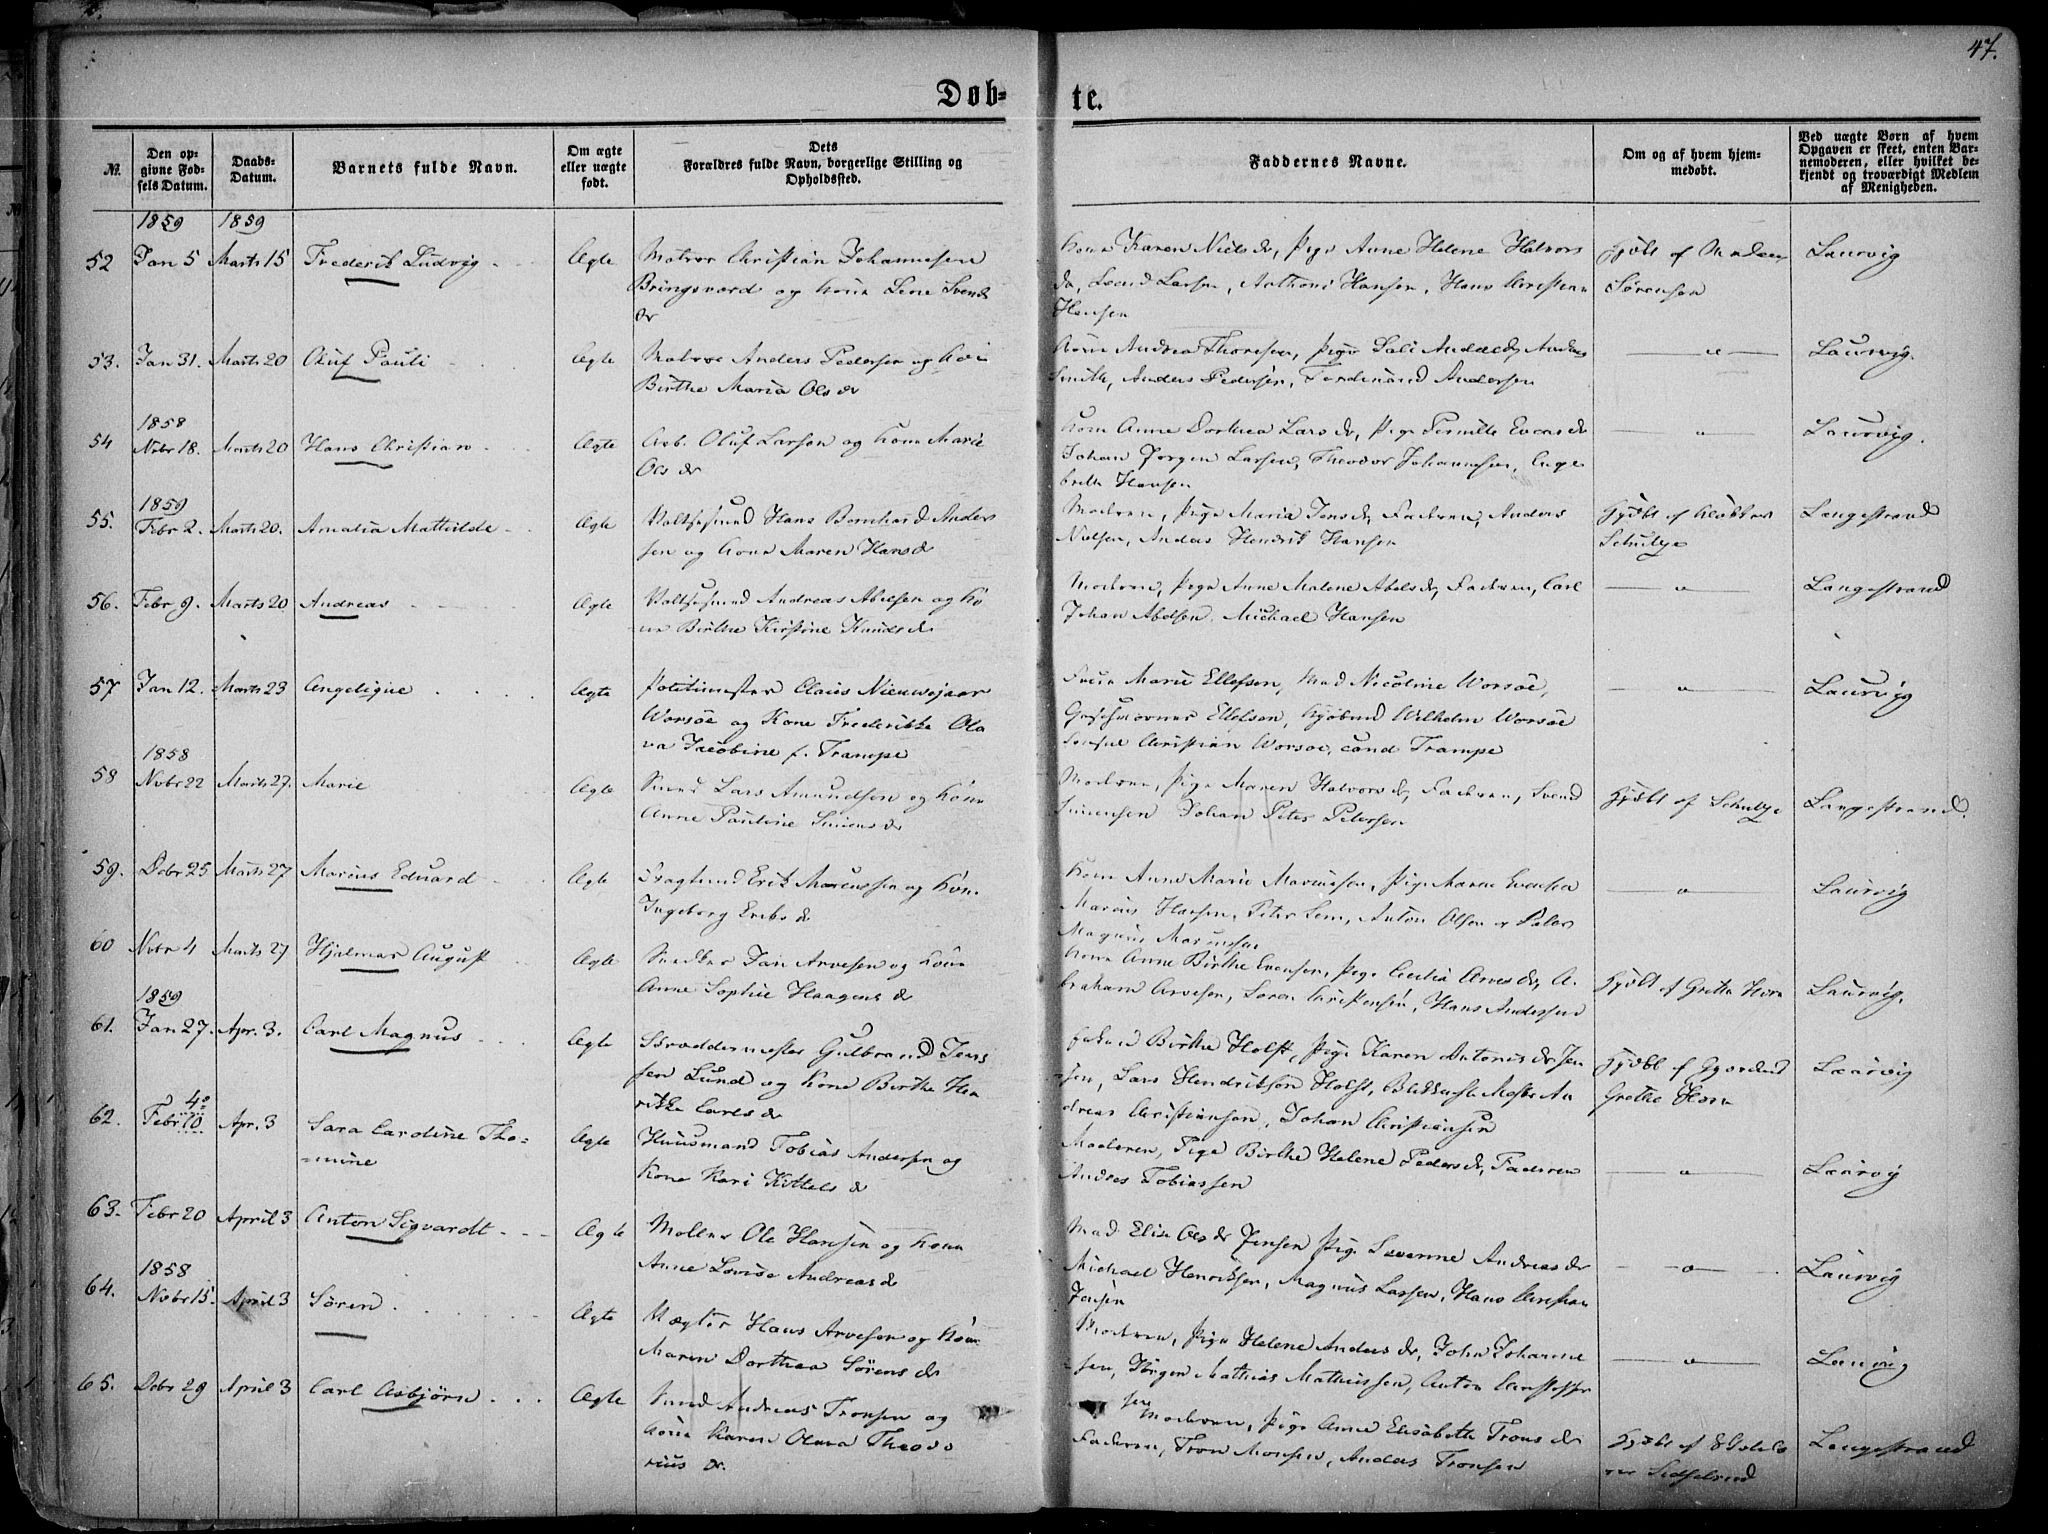 47.
Døb-
te.
№.
Den op-
givne Fød-
sels Datum.
Daabs-
Datum.
Barnets fulde Navn.
Om ægte
eller uægte
født.
Dets
Forældres fulde Navn, borgerlige Stilling og
Opholdssted.
Faddernes Navne.
Om og af hvem hjem-
medøbt.
Ved uægte Børn af hvem
Opgaven er skeet, enten Bar-
nemoderen, eller hvilket be-
kjendt og troværdigt Medlem
af Menigheden.
1859 1859
52 Jan 5 Marts 15 Frederik Ludvig Ægte Matros Christian Johannesen
Bringsværd og Kone Lene Svends
dr
Kone Karen Niels dr, Pige Anne Helene Halvors
dr, Svend Larsen, Anthoni Hansen, Hans Christian
Hansen
Hjdbt af
Sørensen
Laurvig
53. Jan 31. Marts 20 Oluf Pauli Ægte Matros Anders Pedersen og Kone
Birthe Maria Ols dr
Kone Andrea Thoresen, Pige
Smith, Anders Pedersen, Ferdinand Andersen
— " —
Laurvig.
1858
54 Nvbr 18. Marts 20 Hans Christian Ægte Arb. Oluf Larsen og Kone Marie
Ols dr
Kone Anne Dorthea Lars dr, Pige Pernille Evens dr
Johan Jørgen Larsen, Theodor Johannesen, Enge
brett Hansen
— " —
Laurvig.
1859
55. Febr 2. Marts 20. Amalia Mathilde Ægte Hans Bernhard Anders
sen og Kone Maren Hans dr
Moderen, Pige Maria Jens dr, Faderen, Anders
Nielsen, Anders Hendrik Hansen
Hjdbt af Klokker
Schulze
Langestrand
56. Febr 9. Marts 20 Andreas Ægte Andreas Abelsen og Ko
ne Birthe Kirstine Knuds dr
Moderen, Pige Anne Malene Abels dr, Faderen, Carl
Johan Abelsen, Michael Hansen
— " —
Langestrand
57 Jan 12. Marts 23 Angelique Ægte Politimester Claus Nieuwejaar
Worsöe og Kone Frederikke Ola
va Jacobine f. Trampe
Frue Marie Ellefsen, Mad Nicoline Worsöe,
Ellefsen, Kjøbmd Wilhelm Worsöe
Christian Worsöe, cand Trampe
— " —
Laurvig
1858
58 Nvbr 22 Marts 27. Marie Ægte Smed Lars Amundsen og Kone
Anne Pauline Simens dr
Moderen, Pige Maren Halvors dr, Faderen, Svend
Simensen Johan Peter Petersen
Hjdbt af Schulze
Langestrand.
59. Dcbr 25 Marts 27 Marius Eduard Ægte Erik Marcussen og Kone
Ingeborg Eriks dr
Kone Anne Marie Marcussen, Pige Maren
Marius Hansen, Peter Lem, Anton Olsen
Magnus Marcussen
— " —
Laurvig
60 Nvbr 4 Marts 27 Hjalmar August Ægte Snedker Jan Arvesen og Kone
Anne Sophie Haagens dr
Kone Anne Birthe Evensen, Pige Cecilia Arves dr, A
braham Arvesen, Søren Christensen, Hans Andersen
Hjdbt af Grethe Horn
Laurvig.
1859
61. Jan 27. Apr. 3. Carl Magnus Ægte Skræddermester Gulbrand Jens
sen Lund og Kone Birthe Hen
rikke Carls dr
Birthe Holst, Pige Karen Antonis dr Jen
sen, Lars Hendriksen Holst, An
dreas Christiansen, Johan Christiansen
Hjdbt af
Grethe Horn
Laurvig
4°
62. Febr 10 Apr. 3 Sara Caroline Tho=
=mine
Ægte Huusmand Tobias Andersen og
Kone Kari Kittels dr
Moderen, Pige Birthe Helene Peders dr, Faderen
Andres Tobiassen
— " —
Laurvig
63. Febr 20 April 3 Anton Sigvardt Ægte Møller Ole Hansen og Kone
Anne Lovise Andreas dr
Mad Elise Ols dr Jensen Pige Severine Andreas dr
Michael Henriksen, Magnus Larsen, Hans Christian
Jensen
— " —
Laurvig
1858
64. Nvbr 15. April 3 Søren Ægte Vægter Hans Arvesen og Kone
Maren Dorthea Sørens dr
Moderen, Pige Helene Anders dr, John Johanne
sen, Jørgen Mathias Mathissen, Anton Christoffer
sen
— " —
Laurvig
65. Dcbr 29 April 3 Carl Asbjørn Ægte Smed Andreas Tronsen og
Kone Karen Olava Theodo
rius dr.
Moderen, Pige Anne Elisabeth Trons dr
Faderen, Tron Monsen, Anders Tronsen
Hjdbt af
Langestrand